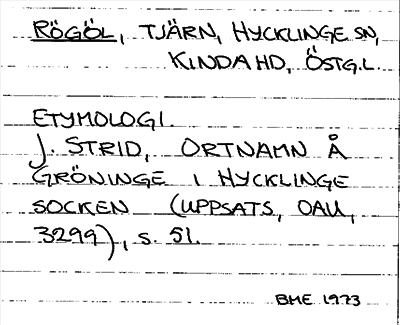 RÖGÖL, TJÄRN, HYCKLINGE SN,
KINDA HD, ÖSTG.L.
ETYMOLOGI.
J. STRID, ORTNAMN Å
GRÖNINGE I HYCKLINGE
SOCKEN (UPPSATS, OAU,
3299), s. 51.
BME 1973